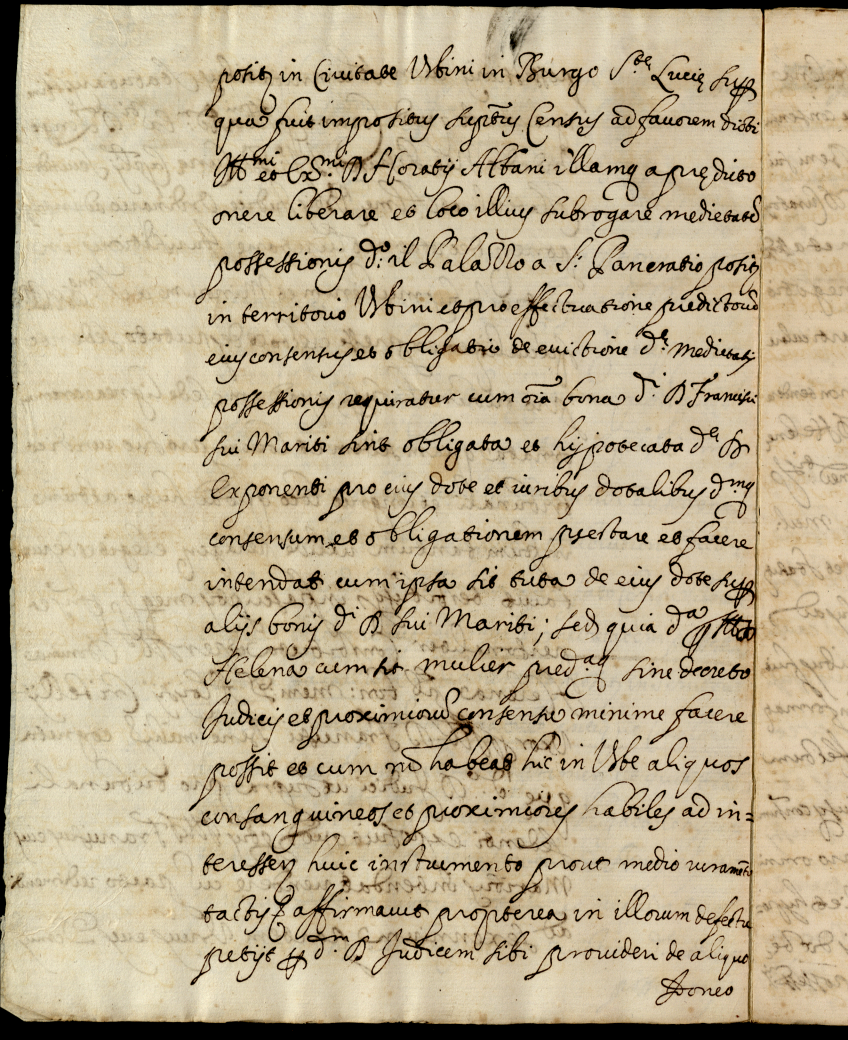 posit. in Civitate Urbini in Burgo S.te Lucię sup.
qua fuit impositus sup.tus Census ad favorem dicti
Ill.mi et Ex.mi D. Horatij Albani illamq. a prędicto
onere liberare et loco illius subrogare medietatē
possessionis d.o il Palazzo a S. Pancratio posit.
in territorio Urbini et pro effectuatione predictorū
eius consensus et obligatio de evictione d.e medietatis
possessionis requiratur cum oīa bona d.i D. Francisci
sui Mariti sint obligata et hypotecata d.e D.
Exponenti pro eius dote et iuribus dotalibus d.mq
consensum et obligationem prestare et facere
intendat cum ipsa sit tuta de eius dote sup.
alijs bonis d.i D. sui Mariti; sed quia d.a
Helena cum sit mulier pred.aq sine decreto
Judicis et proximiorū consensu minime facere
possit et cum nō habeat hic in Urbe aliquos
consanguineos et proximiores habiles ad in=
teressen. huic instrumento prout medio iuramēto
tactis affirmavit propterea in illorum defectu
petijt p. d.m D. Judicem sibi provideri de aliquo
Idoneo